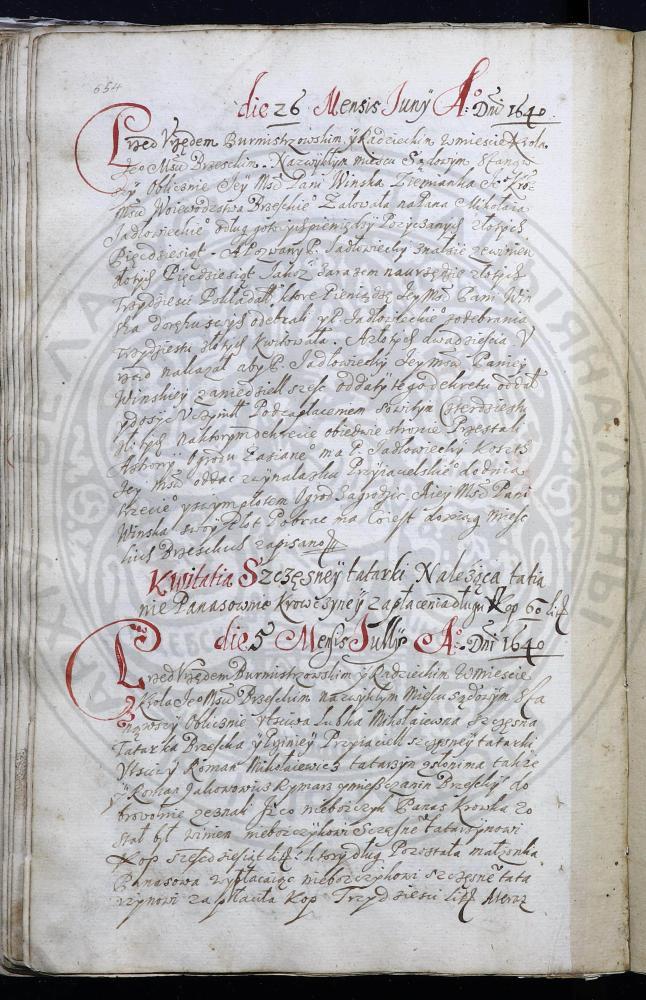 654
die 26 Mensis Juny Ao: Dni 1640
Przed Vrzędem Burmistrzowskim y Radzieckim w mieście Krola
Jeo Msci Brzeskim. Na zwykłym mieyscu Sądowym Stanąw
szy Oblicznie Jey Msc Pani Winska Ziemianka Je° Kro:
Msci Woiewodztwa Brzeskie° Załowała na Pana Mikołaia
Jadłowieckie° o dług gotowych pieniędzy Pozyczanych złotych
Pięcdziesiąt. A Pozwany P. Jadłowiecky znał się ze winien
złotych Pięcdziesiąt Jakosz zarazem na urzędzie złotych
Trzydziesci Pokładał, ktore Pieniądze Jey Msc Pani Win
ska do rąk swych odebrała y P. Jadłowieckie° z odebrania
trzydziestu złotych kwitowała. A złotych dwadziescia V
rząd nakazał aby P. Jadłowiecky Jey Msci Paniey
Winskiey za niedziel szesc oddał y tego dekretu dodał
y dosyc Vczynił Pod zapłaceniem sowitym Czterdziestu
złotych na ktorym dekrecie obiedwie stronie Przestali
Ogrodu Zasiane° ma P. Jadłowiecky koszt
Jey Msci oddac z wynalasku Przyiacielskie° do dnia
trzecie° y swym płotem Ogrod Zagrodzic, Jey Msc Pani
Winska swoy Płot Pobrac ma Co iest do xiąg mieyc
kich Brzeskich zapisano
Kwitatia Szczęsney tatarki Należąca tatia
nie Panasownie Krowczyney Zapłacenia długu Kop 60 lit
die 5 Mensis Jully Ao: Dni 1640
Przed Vrzędem Burmistrzowskim y Radzieckim w Mieście
Krola Jeo Msci Brzeskim na zwykłym Miescu sądowym Sta
nąwszy Oblicznie Vtsciwa Lubka Mikołaiewna Szczęsna
Tatarka Brzeska y Przyniey Przyiaciel szczęsney tatarki
Vtsciwy Roman Mikołaiewicz tatarzyn takze
y Roman Jakonowicz Rymarz y mieszczanin Brzesky do
browolnie zeznali Jz co nieboszczyk Panas Krowka zo
stał był winien nieboszczykowi Szczęsne° tatarzynowi
Kop szescdziesiąt lit: ktory dług Pozostała małżonka
Panasowa wypłacaiąc nieboszczykowi szczęsne° tata
rzynowi zapłaciła Kop Trzydziesci lit: A teraz